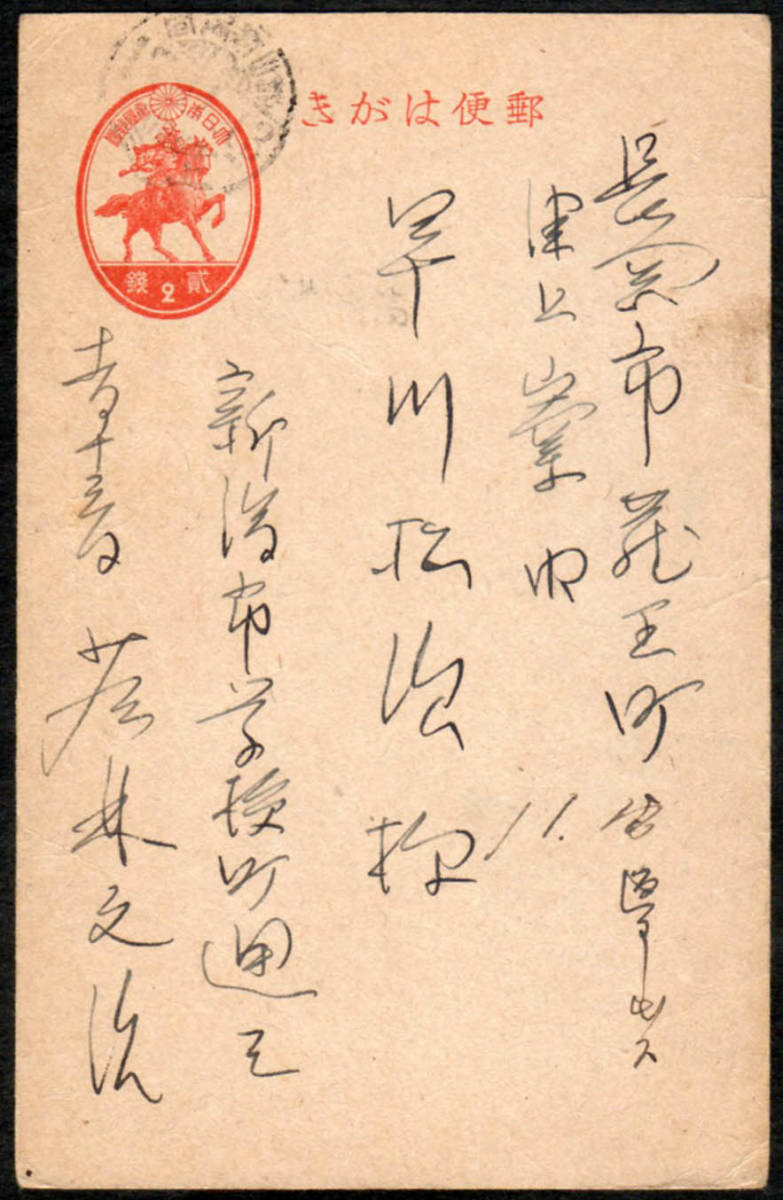 郵便はがき
大日本帝国郵便
貳 2 錢
長岡市蔵王町
津上寮内
早川松治 様
新潟市学校町通三
若林文治